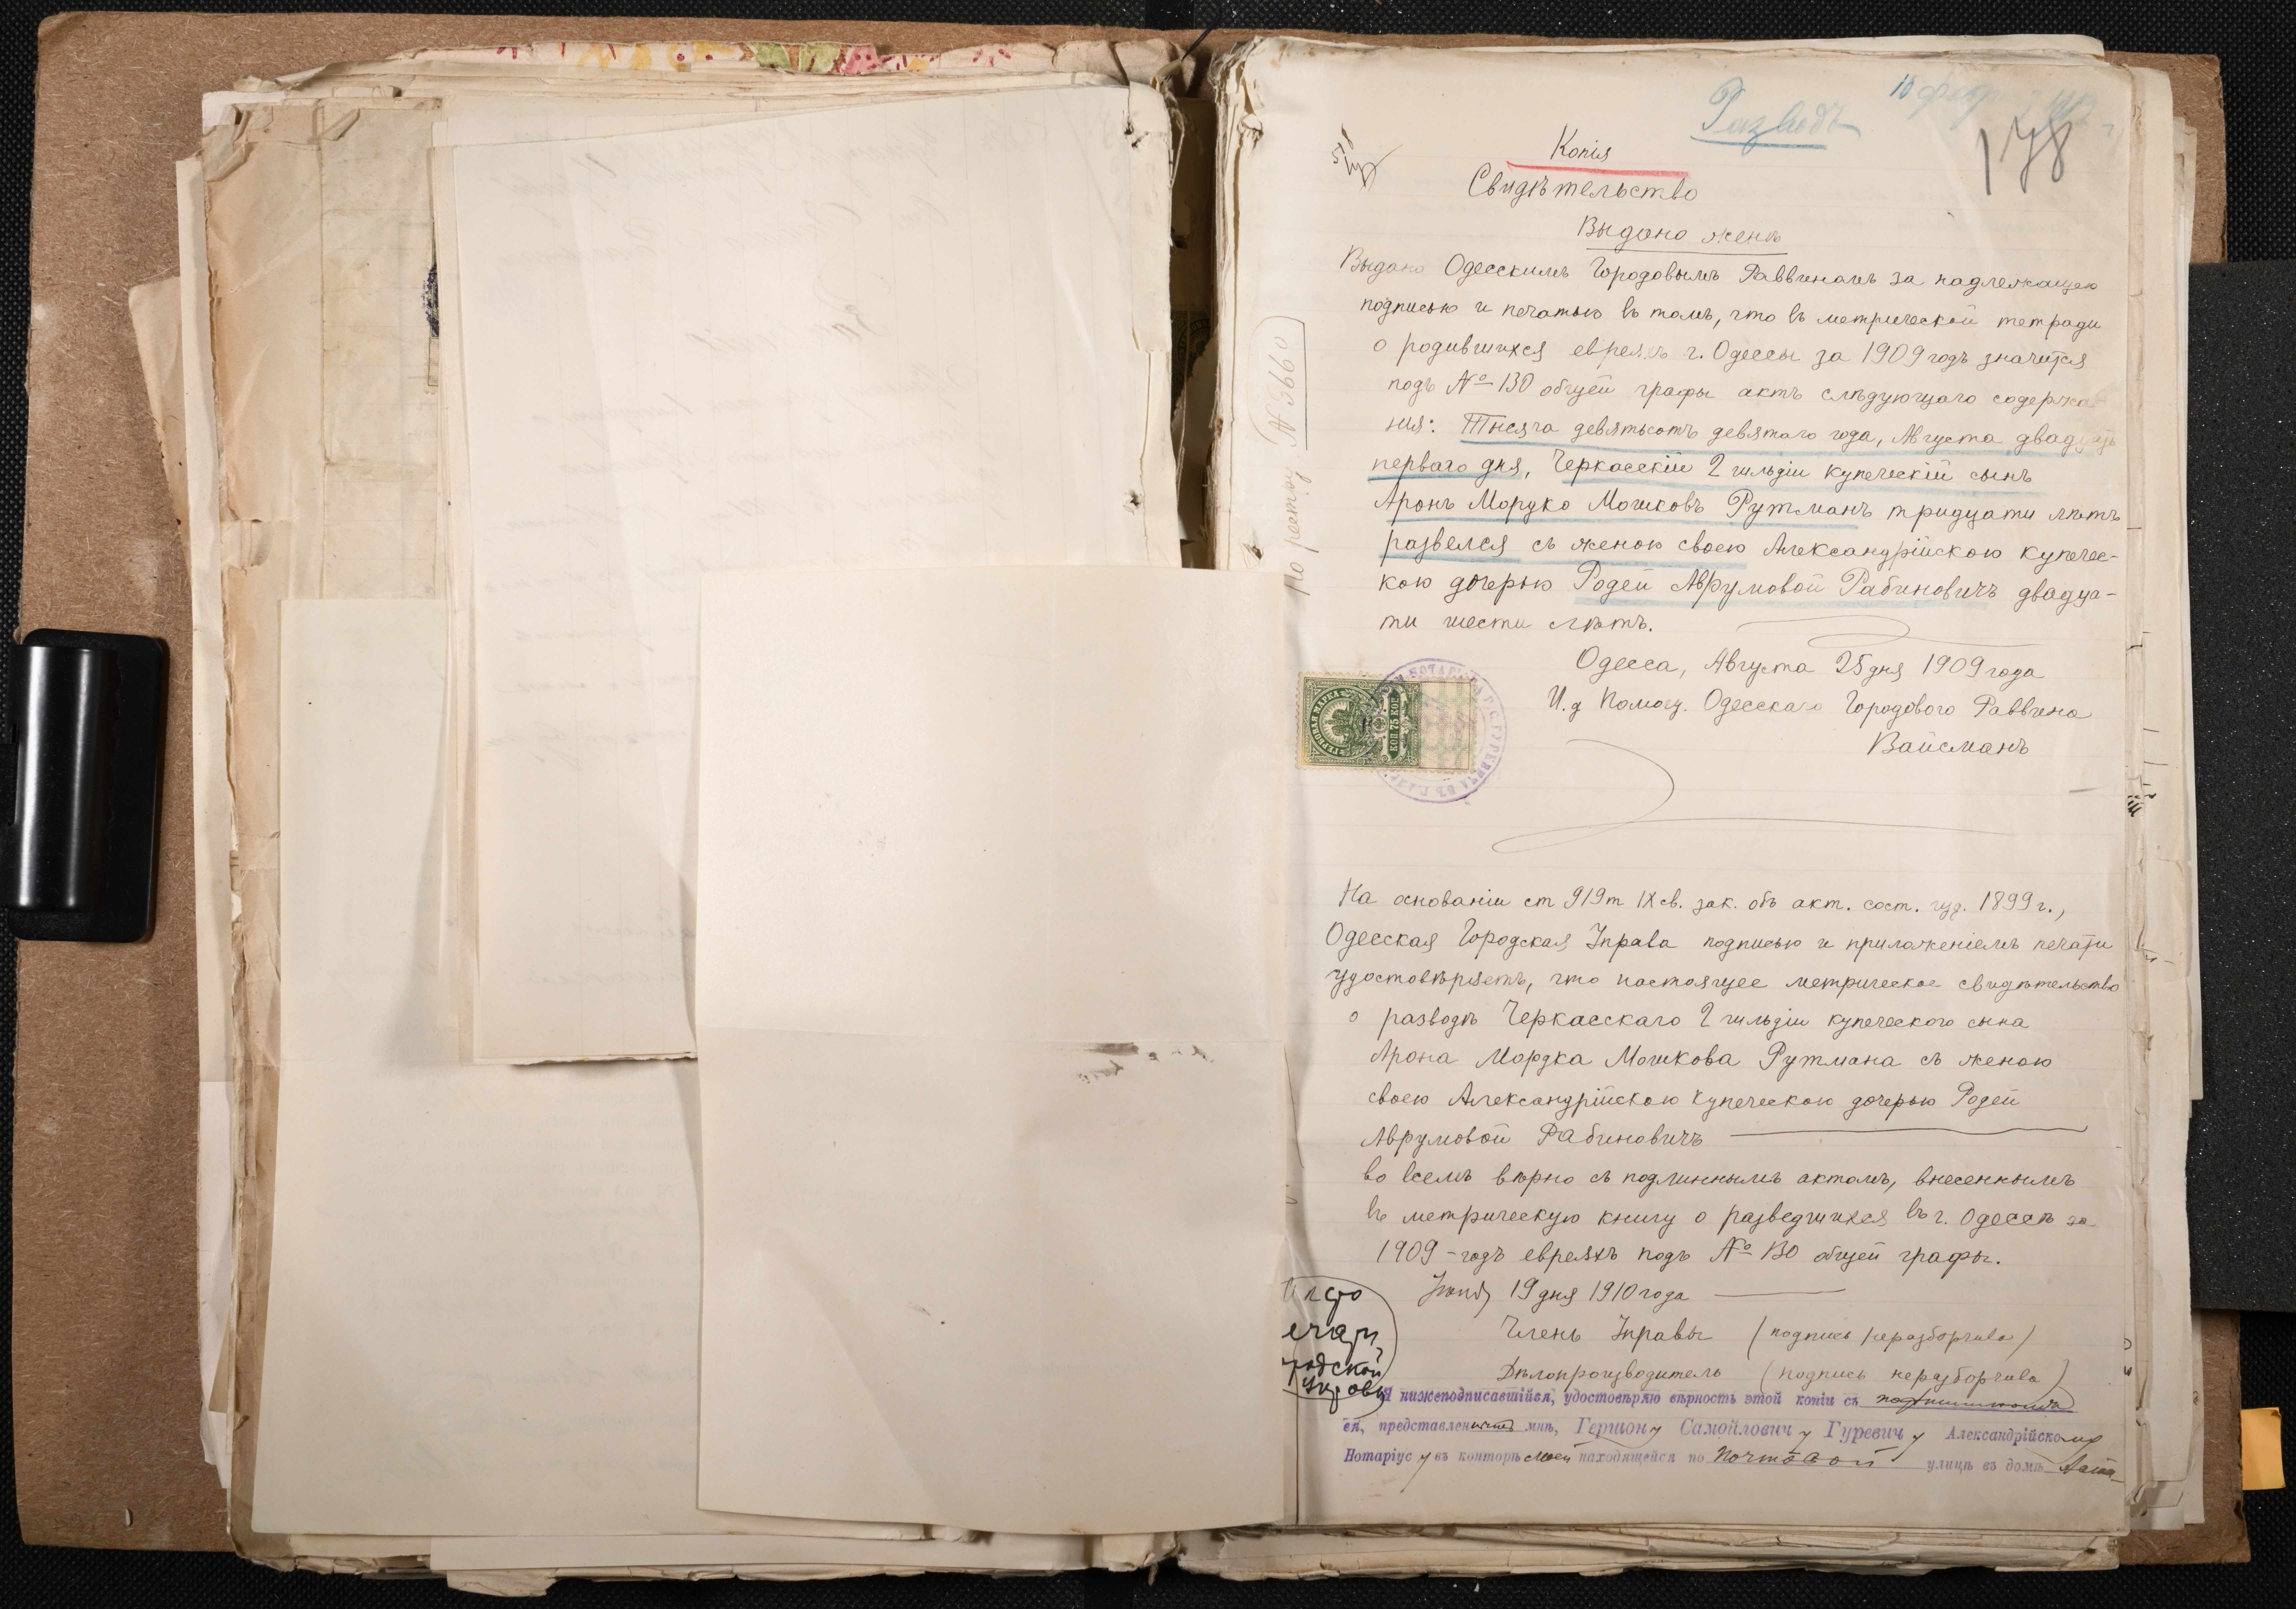 Разводъ
178
Копія
Свидѣтельство
Выдано женѣ
Выдано Одесскимъ Городовымъ Раввиномъ за надлежащею
подписью и печатью въ томъ, что въ метрической тетради
о родившихся евреяхъ г. Одессы за 1909 годъ значится
подъ № 130 общей графы актъ слѣдующаго содержа
нія: Тысяча девятьсотъ девятаго года, Августа двадцать
перваго дня, Черкасскій 2 гильдіи купеческій сынъ
Аронъ Мордко Мошковъ Рутманъ тридцати лѣтъ
развелся съ женою своею Александрійскою купечес-
кою дочерью Родей Аврумовой Рабиновичъ двадца-
ти шести лѣтъ.
Одесса, Августа 25 дня 1909 года
И. д Помощ. Одесскаго Городового Раввина
Вайсманъ
По реестру № 3660
ГЕРБОВАЯ МАРКА
75 КОП
На основаніи ст 919 т IX св. зак. объ акт. сост. 1899 г.,
Одесская Городская Управа подписью и приложеніемъ печати
удостовѣряетъ, что настоящее метрическое свидѣтельство
о разводѣ Черкасскаго 2 гильдіи купеческого сына
Арона Мордка Мошкова Рутмана съ женою
своею Александрійскою купеческою дочерью Родей
Аврумовой Рабиновичъ
во всемъ вѣрно съ подлиннымъ актомъ, внесеннымъ
въ метрическую книгу о разведшихся въ г. Одессѣ за
1909 - годъ евреяхъ подъ № 130 общей графы.
19 дня 1910 года
Членъ Управы (подпись неразборчива)
Дѣлопроизводитель (подпись неразборчива)
ечати
одской
Управы
Я нижеподписавшійся, удостовѣряю вѣрность этой копіи съ
ея, представлен мнѣ, Гершону Самойловичу Гуревичу Александрійскому
Нотаріусу въ конторѣ моей находящейся по Почтовой улицѣ въ домѣ